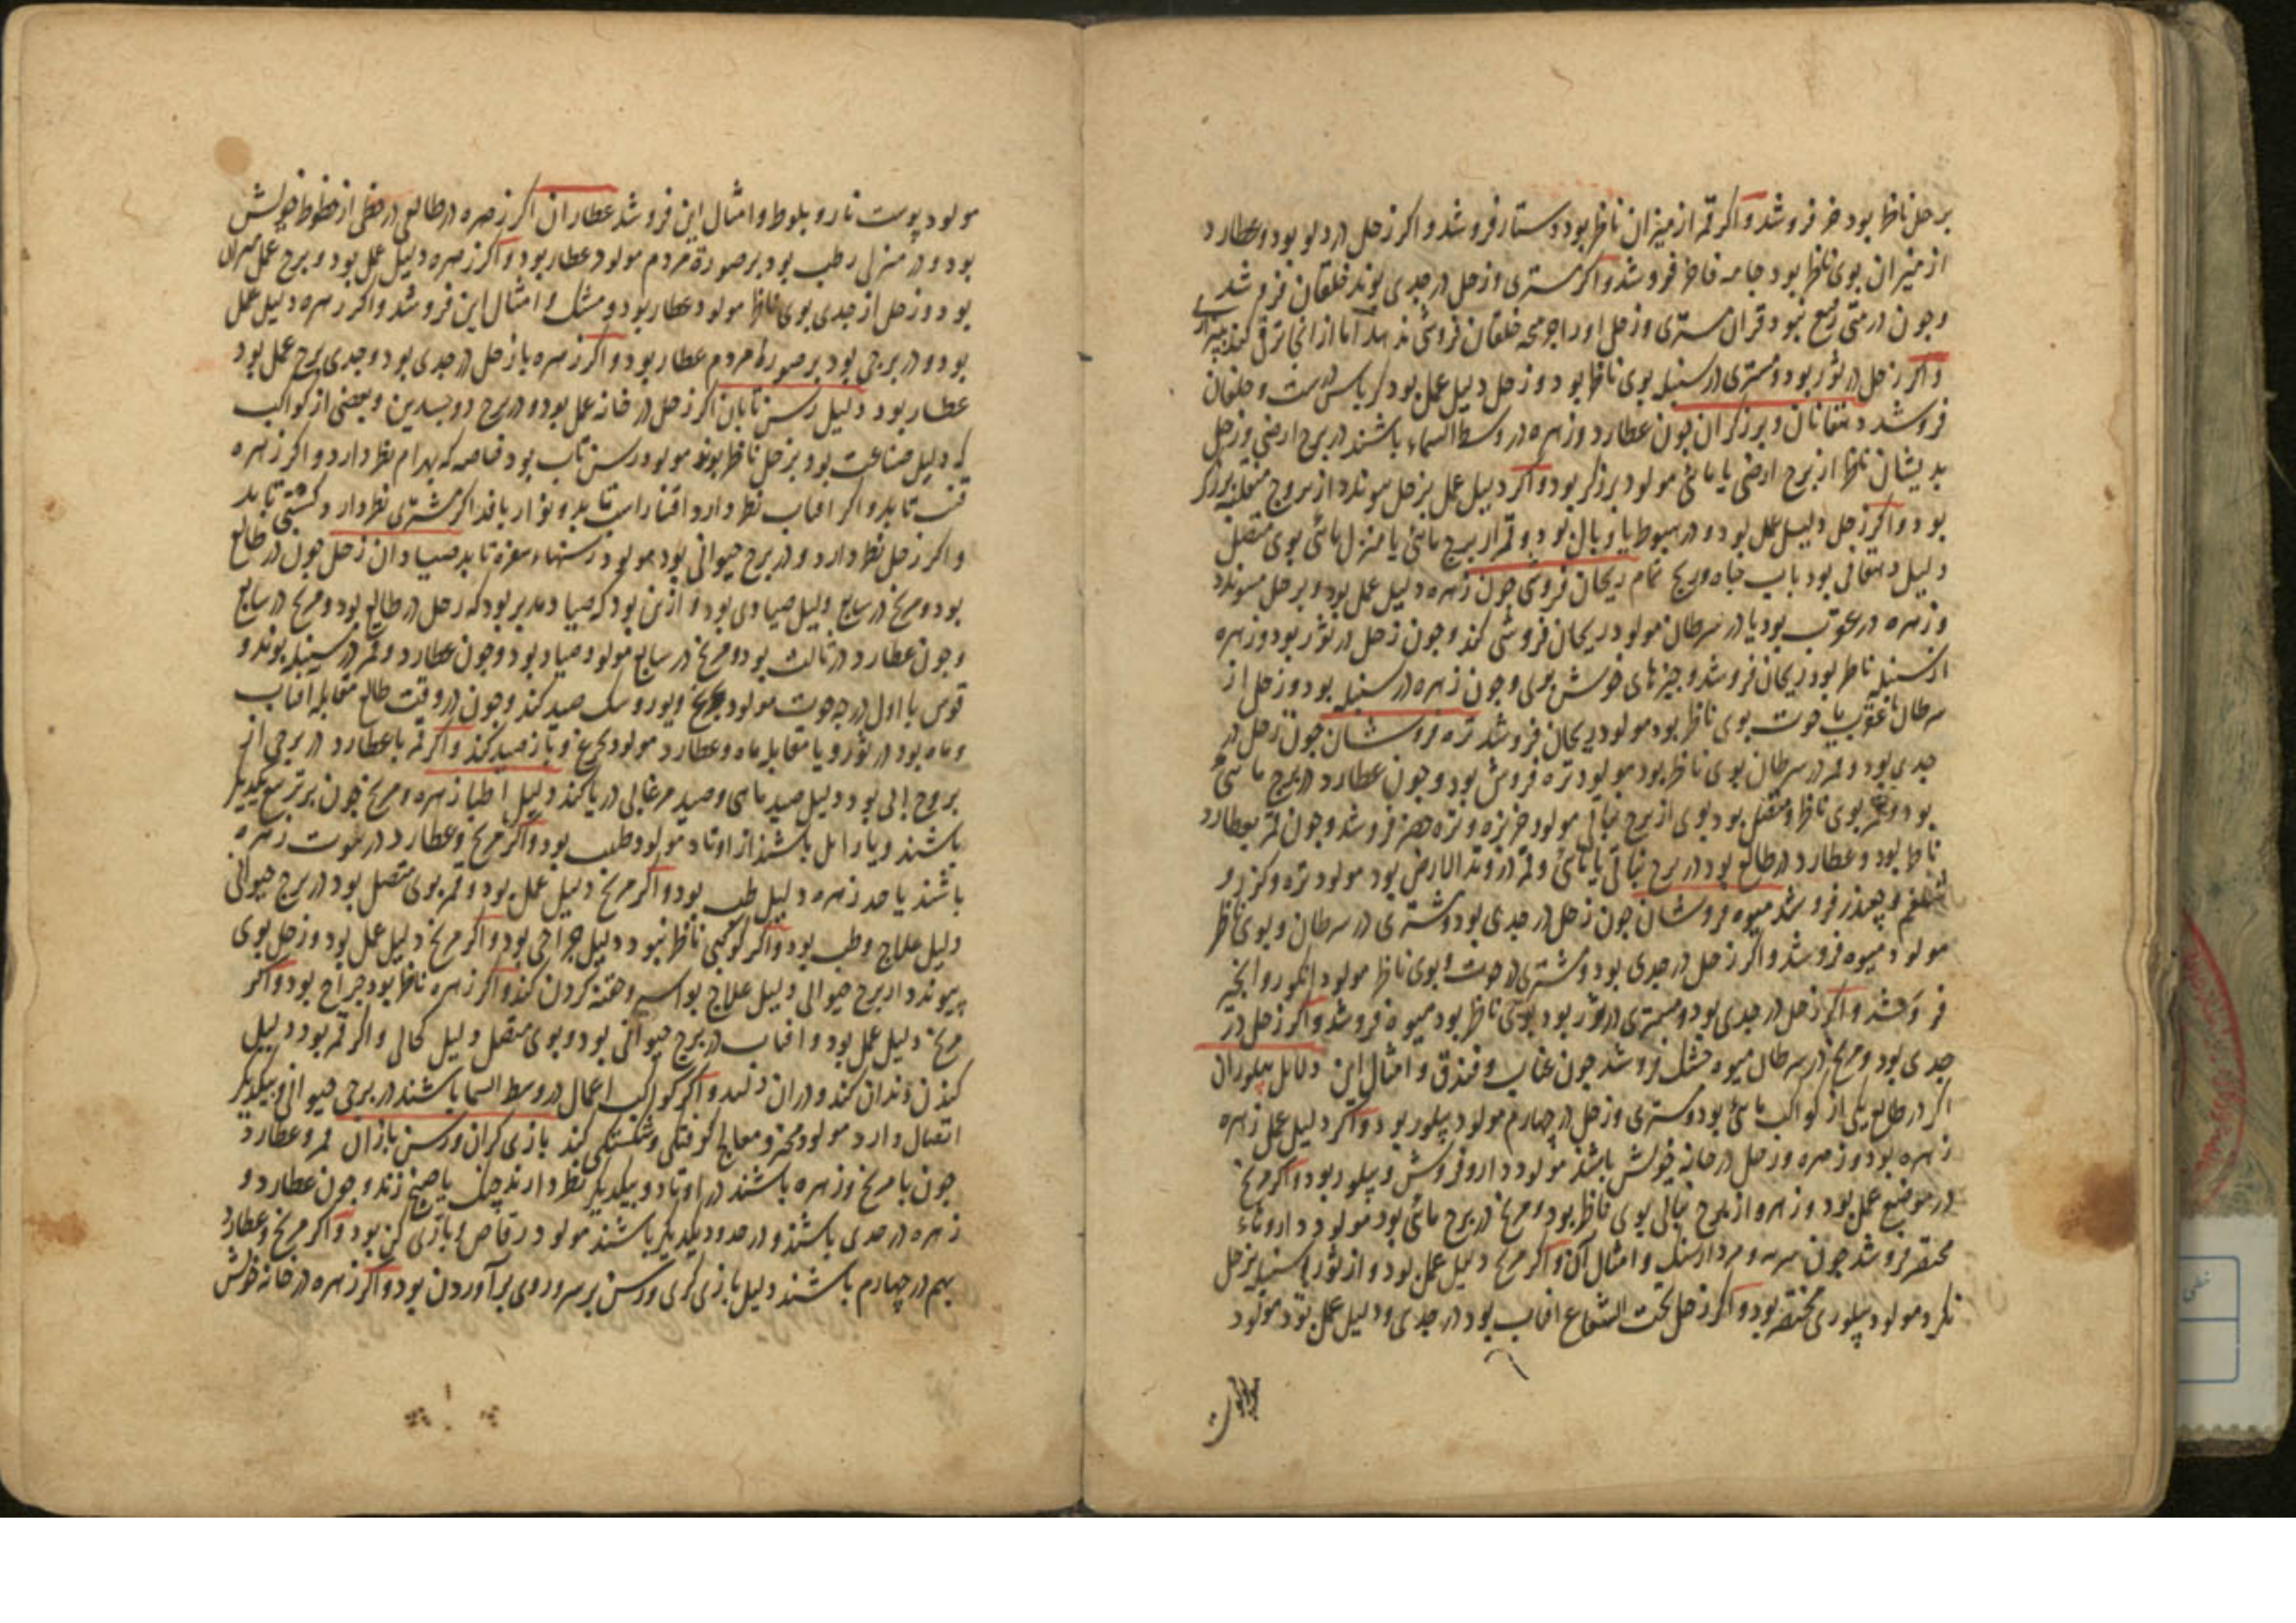 بر حل ناظر بود خز فروشد و اکر قمر از میزان ناظر بود دستار فروشد و اکر زحل در دلو بود و عطارد
از میزان بوی ناظر بود جامه فاخر فروشد و اکر مشتری و زحل در جدی بوند خلقان فروشد
وجون در مثنی ربع نبود قران مشتری و زحل او را جز خلقان فروشی ندهد اما از انجا ترقی کند
و اکر زحل در ثور بود و مشتری در سنبله بوی ناظر بود و زحل دلیل عمل بود کرباس درست و خلقان
فروشد دهقانان و برزکران جون عطارد و زهره در وسط السماء باشند در برج ارضی و زحل
بدیشان ناظر از برج ارضی یا مائی مولود برزکر بود و اکر دلیل عمل بزحل پیوندد از بروج منقلبه برزکر
بود و اکر زحل دلیل عمل بود و در هبوط یا وبال بود و قمر از برج مائی یا منزل مائی بوی متصل
دلیل دهقانی بود باب جاه و رنج تمام ریحان فروشی جون زهره دلیل عمل بود و بزحل پیوندد
و زهره در عقرب بود یا در سرطان مولود ریحان فروشی کند وجون زحل در ثور بود و زهره
از سنبله ناظر بود ریحان فروشد و جیزهای خوش بوی وجون زهره در سنبله بود و زحل از
سرطان یا عقرب یا حوت بوی ناظر بود مولود ریحان فروشد تره فروشان جون زحل در
جدی بود و قمر در سرطان بوی ناظر بود مولود تره فروش بود وجون عطارد در برج مائی
بود و قمر بوی ناظر و متصل بود بوی از برج نباتی مولود خربزه و تره فروشد وجون قمر بعطارد
ناظر بود و عطارد در طالع بود در برج نباتی یا مائی و قمر در وتد الارض بود مولود تره و کزر و
شلغم و جغندر فروشد میوه فروشان جون زحل در جدی بود و مشتری در سرطان و بوی ناظر
مولود میوه فروشد و اکر زحل در جدی بود و مشتری در حوت و بوی ناظر مولود انکور و انجیر
فروشد و اکر زحل در جدی بود و مشتری در ثور بود بوی ناظر بود میوه فروشد و اکر زحل در
جدی بود و مریخ در سرطان میوه خشک فروشد جون عناب و فندق و امثال این دلایل پیلوران
اکر در طالع یکی از کواکب مائی بود و مشتری و زحل در جهارم مولود پیلور بود و اکر دلیل عمل زهره
زهره بود و زهره و زحل در خانه خویش باشند مولود دارو فروش و پیلور بود و اکر مریخ
در موضع عمل بود و زهره از بروج نباتی بوی ناظر بود و مریخ در برج مائی بود مولود داروهاء
مختصر فروشد جون سرمه و مردارسنک و امثال آن و اکر مریخ دلیل عمل بود و از ثور یا سنبله بزحل
نکرد مولود پیلوری مختصر بود و اکر زحل تحت الشعاع افتاب بود در جدی و دلیل عمل بود مولود
مولود پوست نار و بلوط و امثال این فروشد عطاران اکر زهره در طالع در حظی از حظوظ خویش
بود و در منزل رطب بود بر صورة مردم مولود عطار بود و اکر زهره دلیل عمل بود و برج عمل میزان
بود و زحل از جدی بوی ناظر مولود عطار بود و مشک و امثال این فروشد و اکر زهره دلیل عمل
بود و در برجی بود بر صورة مردم عطار بود و اکر زهره با زحل در جدی بود و جدی برج عمل بود
عطار بود دلیل رسن تابان اکر زحل در خانه عمل بود و در برج دو جسدین و بعضی از کواکب
که دلیل صناعت بود بزحل ناظر بوند مولود رسن تاب بود خاصه که بهرام نظر دارد و اکر زهره
تابد و اکر افتاب نظر دارد تابد و نوار بافد اکر مشتری نظر دارد کستی تابد
و اکر زحل نظر دارد و در برج حیوانی بود مولود رسنهاء تابد صیادان زحل جون در طالع
بود و مریخ در سابع دلیل صیادی بود و ازین بود که صیاد مدبر بود که زحل در طالع بود و مریخ در سابع
وجون عطارد در ثالث بود و مریخ در سابع مولود صیاد بود وجون عطارد و قمر در سنبله بوند و
قوس یا اول درجه حوت مولود بجرغ و یوز و سک صید کند وجون در وقت طالع مقابله افتاب
و ماه بود در ثور و یا مقابله ماه و عطارد مولود بجرغ و باز صید کند و اکر قمر با عطارد در برجی از
بروج ابی بود دلیل صید ماهی و صید مرغابی در یا کند دلیل اطبا زهره و مریخ جون بر تربیع یکدیکر
باشند و یا زایل باشند از اوتاد مولود طبیب بود و اکر مریخ و عطارد در حوت زهره
باشند یا حد زهره دلیل طب بود و اکر مریخ دلیل عمل بود و قمر بوی متصل بود در برج حیوانی
دلیل علاج و طب بود و اکر کوکبی ناظر نبود دلیل جراحی بود و اکر مریخ دلیل عمل بود و زحل بوی
پیوندد از برج حیوانی دلیل علاج بواسیر و ختنه کردن کند و اکر زهره ناظر بود جراح بود و اکر
مریخ دلیل عمل بود و افتاب در برج حیوانی بود و بوی متصل دلیل کحالی و اکر قمر بود دلیل
کندن دندان کند و دران دلند و اکر کواکب اعمال در وسط السما باشند در برجی حیوانی و بیکدیکر
اتصال دارد مولود مجبر و معالج کوفتکی و شکستکی کند بازی کران و رسن بازان قمر و عطارد
جون با مریخ و زهره باشند در اوتاد و بیکدیکر نظر دارند جنک یا صنج زند وجون عطارد و
زهره در حدی باشند و در حدود یکدیکر باشند مولود رقاص و بازی کن بود و اکر مریخ و عطارد
بهم در جهارم باشند دلیل بازی کری و رسن بر سر و روی بر آوردن بود و اکر زهره در خانه خویش